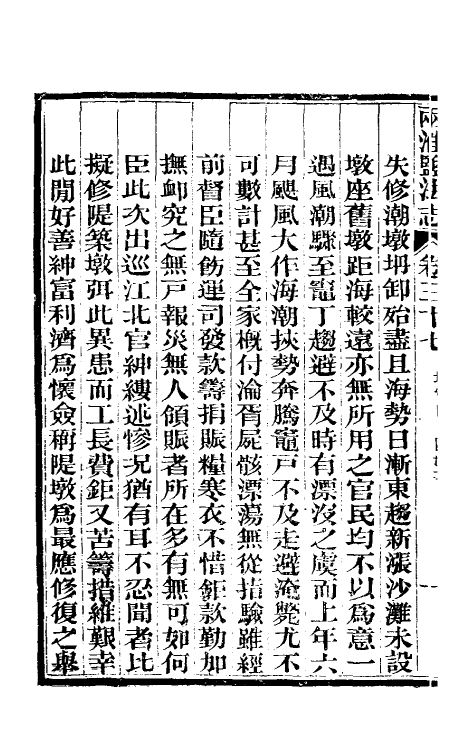 兩淮鹽法志
卷三十七
失修潮墩坍卸殆盡且海勢日漸東趨新漲沙灘未設
墩座舊墩距海較遠亦無所用之官民均不以爲意一
遇風潮驟至竈丁趨避不及時有漂沒之虞而上年六
月颶風大作海潮挾勢奔騰竈戸不及走避淹斃尤不
可數計甚至全家概付淪胥屍骸漂蕩無從指驗雖經
前督臣隨飭運司發款籌捐賑糧寒衣不惜鉅款勤加
撫卹究之無戸報災無人領賑者所在多有無可如何
臣此次出巡江北官紳縷述慘况猶有耳不忍聞者比
擬修隄築墩弭此異患而工長費鉅又苦籌措維艱幸
此閒好善紳富利濟爲懷僉稱隄墩爲最應修復之舉